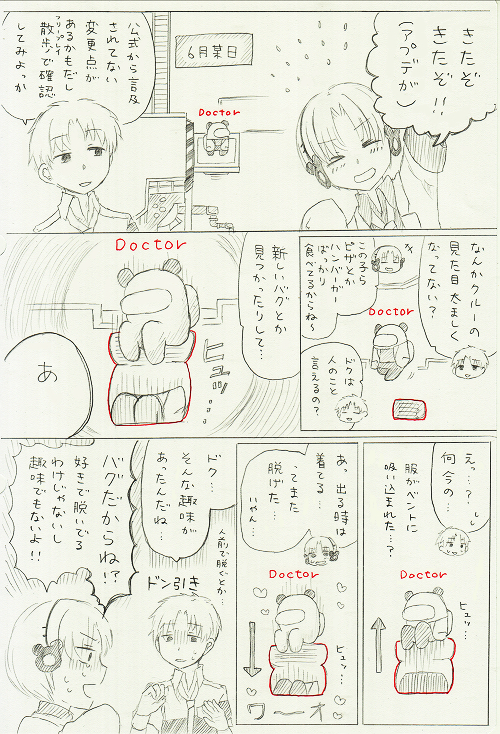 きたぞ
きたぞ!!
(アプデが)
6月某日
Doctor
公式から言及
されてない
変更点が
あるかもだし
フリープレイ
散歩で確認
してみよっか
なんかクルーの
見た目 太ましく
なってない?
この子ら
ピザとか
ハンバーガ
ばっかり
食べてるからね〜
Doctor
ドクは
人のこと
言えるの?
新しいバグとか
見つかったりして…
Doctor
ヒュッ…
あ
えっ…?
何今の…
服がベントに
吸い込まれた…?
Doctor
ヒュッ…
あっ出る時は
着てる…
ってまた
脱げた…
いやん…
Doctor
ヒュッ…
ワーオ
ドク…
そんな趣味が
あったんだね…
人前で脱ぐとか…
ドン引き
バグだからね!?
好きで脱いでる
わけじゃないし
趣味でもないよ!!